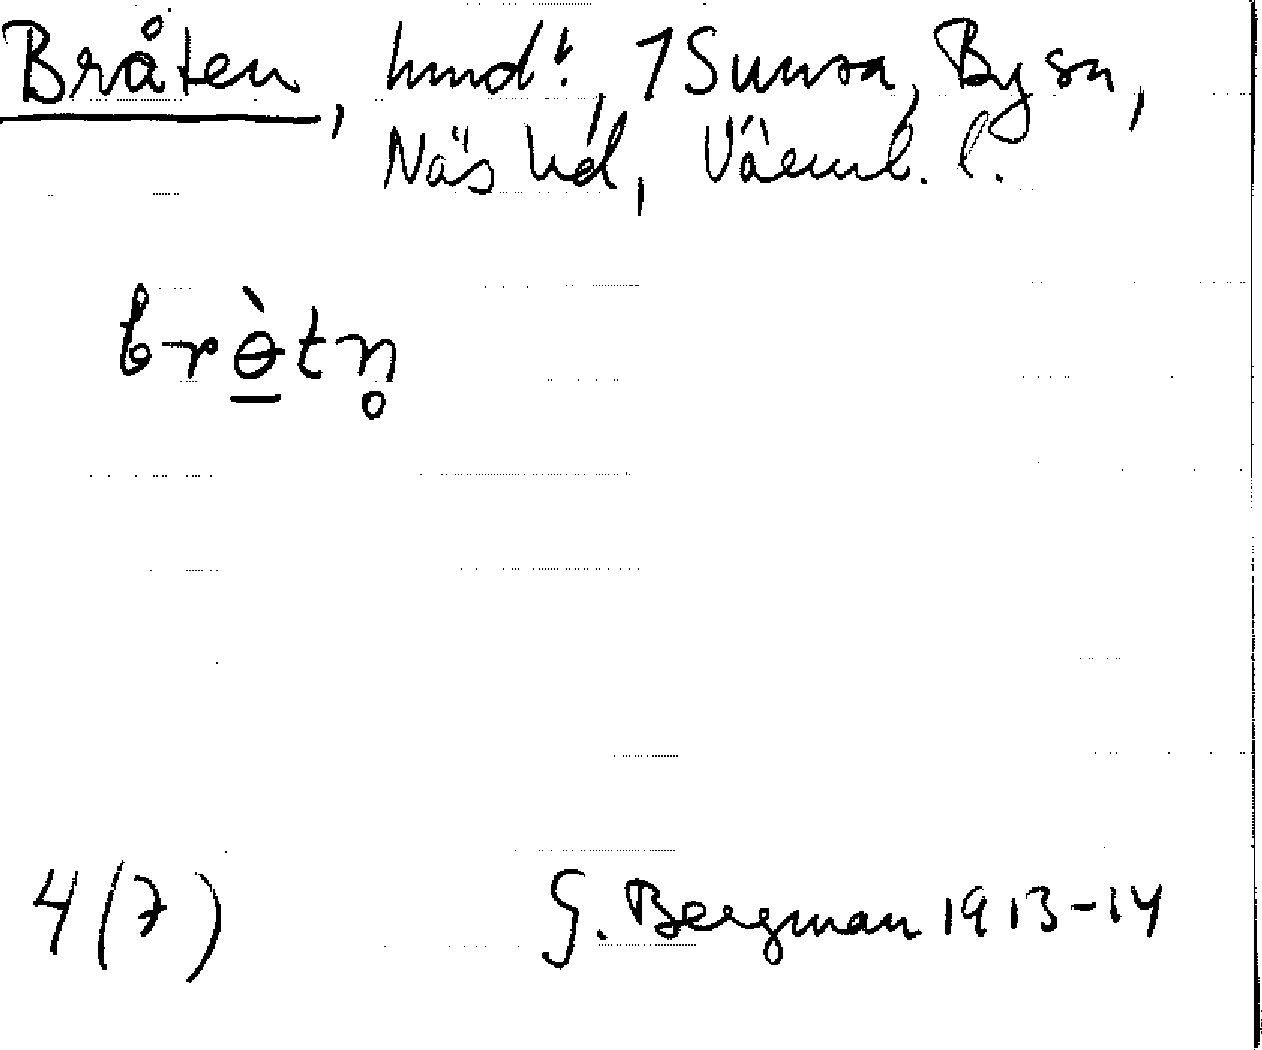 Bråten, hmd:, 1 Sunnra, By sn,
Näs hd, Värml. l.
brɵ̀tn̥
4(7) G. Bergman 1913-14